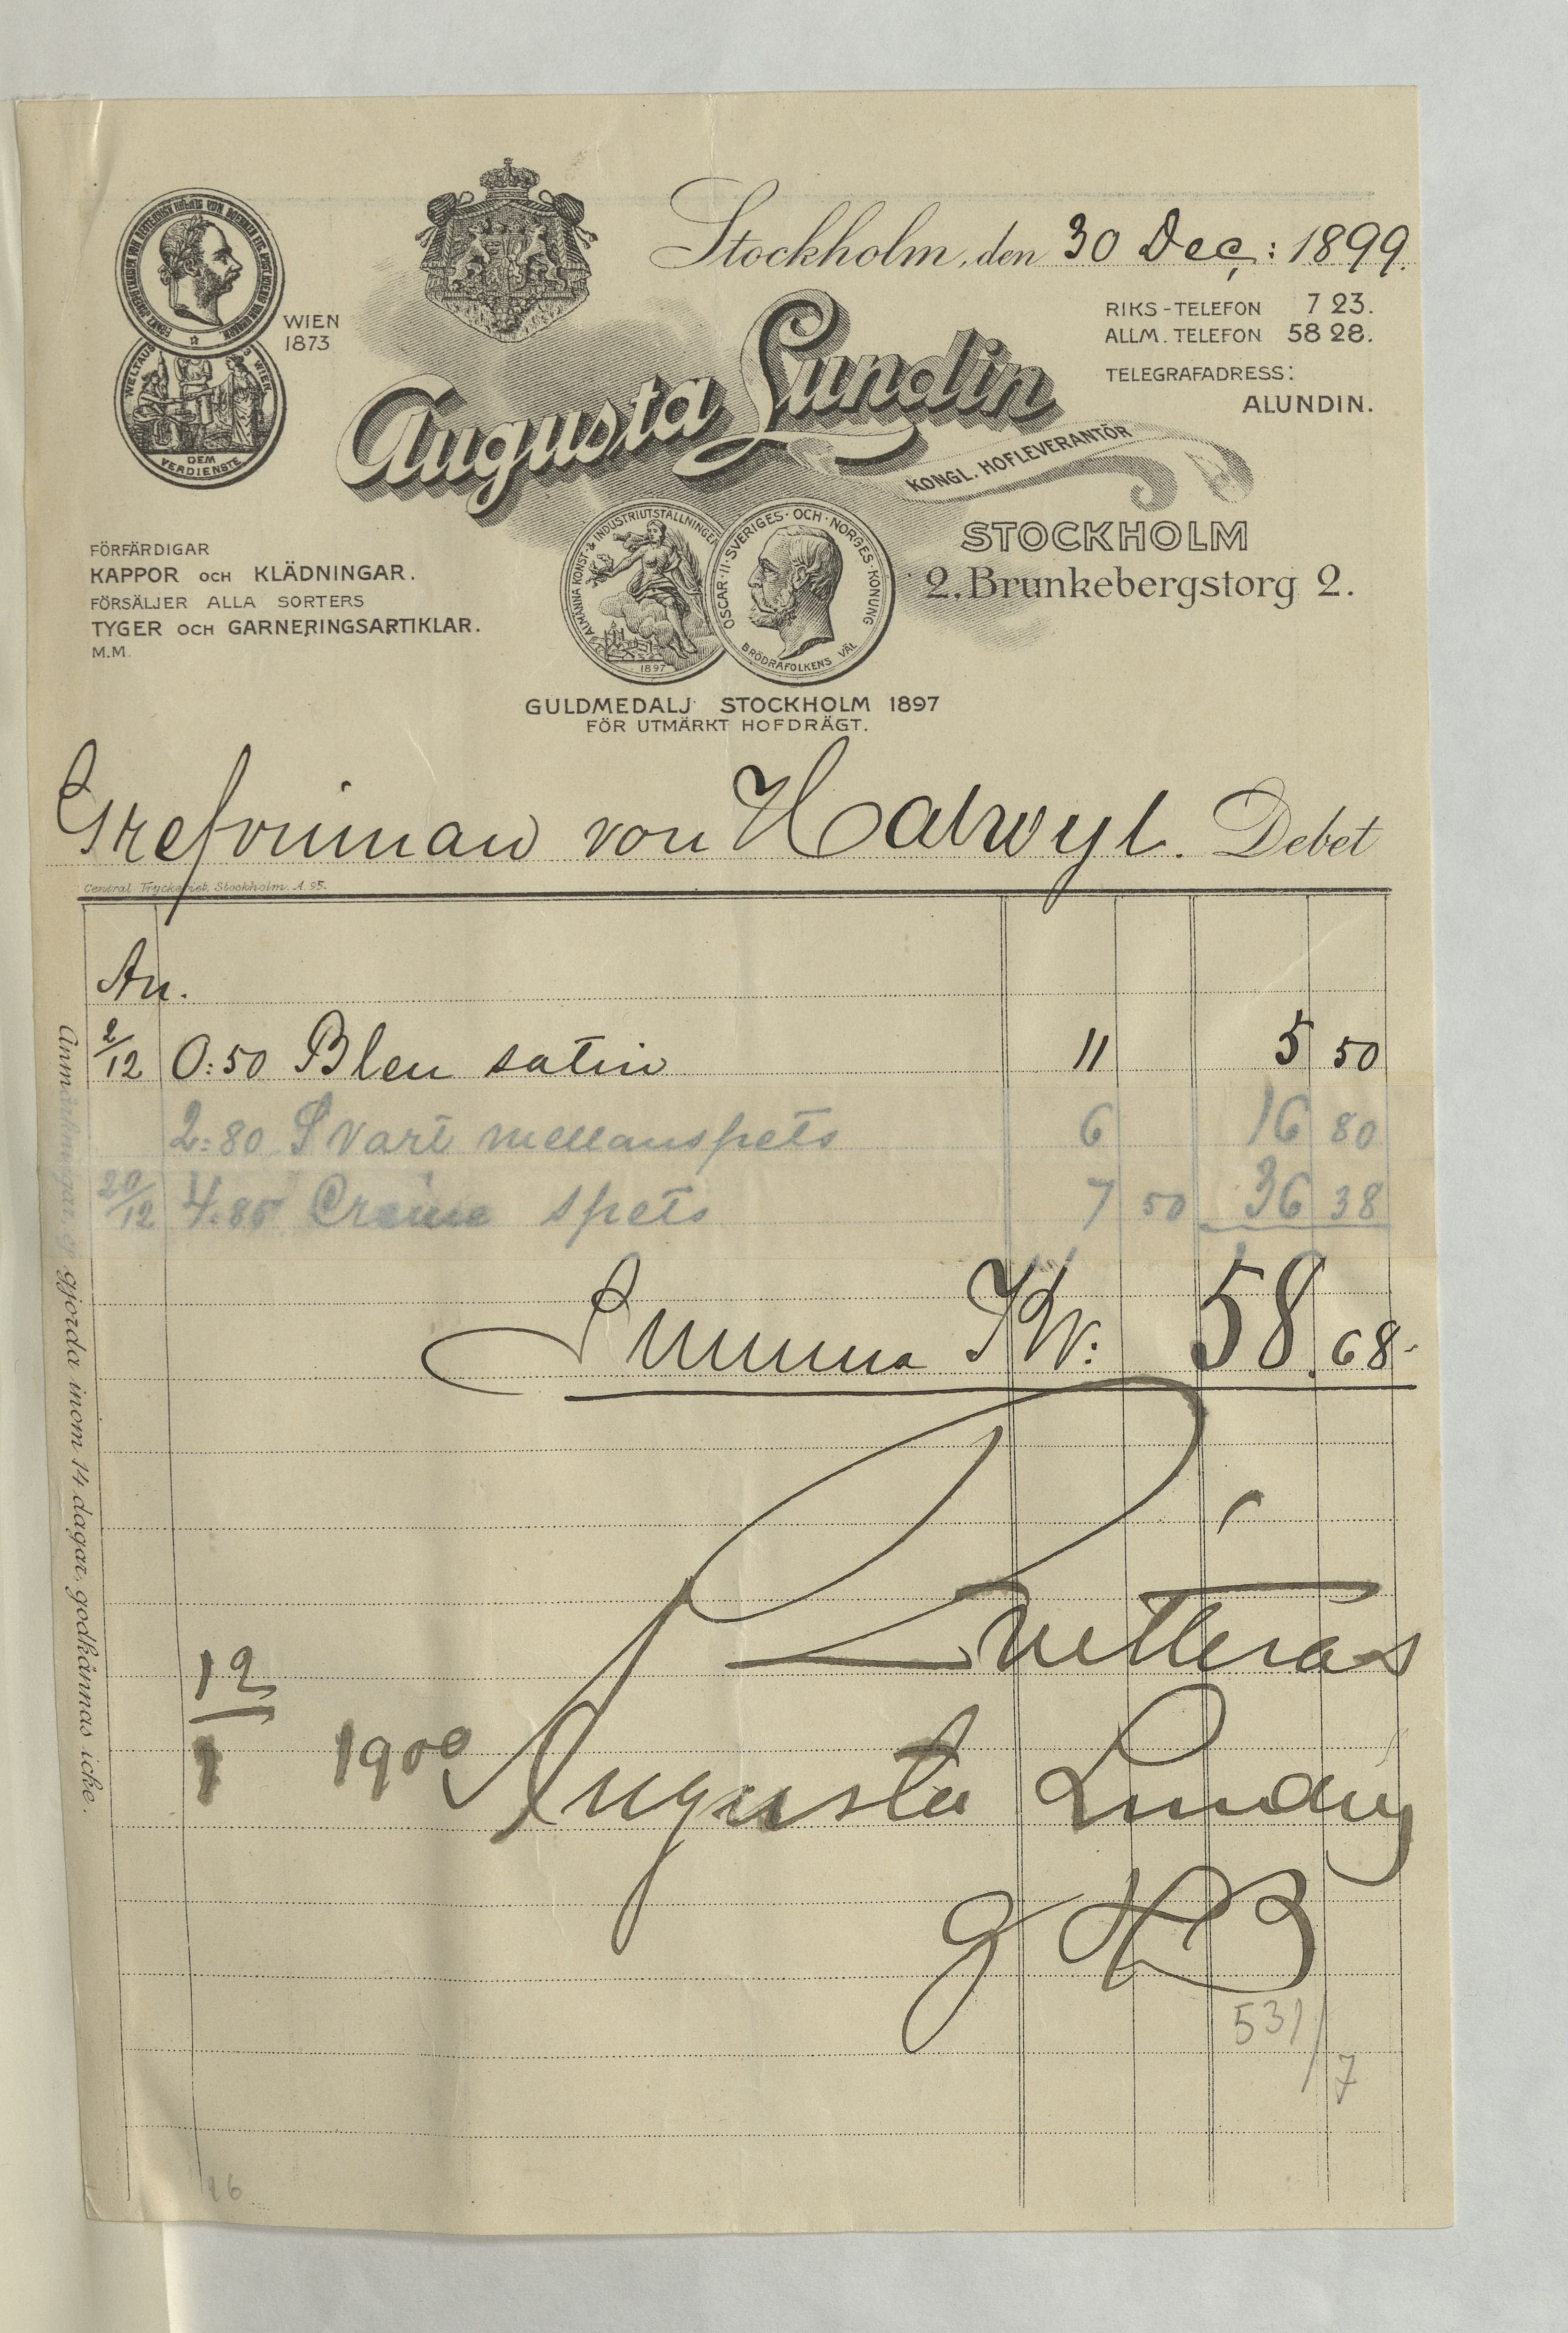 Stockholm, den 30 Dec: 1899.
WIEN
1873
RIKS-TELEFON 7 23.
ALLM. TELEFON 58 28.
TELEGRAFADRESS:
ALUNDIN.
Augusta Lundin
KONGL. HOFLEVERANTÖR
WELTAUS WIEN
DEM
VERDIENSTE
FÖRFÄRDIGAR
KAPPOR OCH KLÄDNINGAR.
FÖRSÄLJER ALLA SORTERS
TYGER OCH GARNERINGSARTIKLAR.
M.M.
ALMÄNNA KONST- & INDUSTRIUTSTÄLLNINGEN
1897
OSCAR·II·SVERIGES·OCH·NORGES·KONUNG
BRÖDRAFOLKENS VÄL
STOCKHOLM
2, Brunkebergstorg 2.
GULDMEDALJ STOCKHOLM 1897
FÖR UTMÄRKT HOFDRÄGT.
Grefvinnan von Halwyl. Debet
Central Tryckeriet, Stockholm. A. 95.
An.
2/12 0:50 Bleu satin 11 5 50
2:80 Svart mellanspets 6 16 80
20/12 4:85 Crème spets 7 50 36 38
Summa Kr: 58.68
Qvitteras
12/1 1900 Augusta Lundin
g HB
531/7
26
Anmärkningar, ej gjorda inom 14 dagar, godkännas icke.